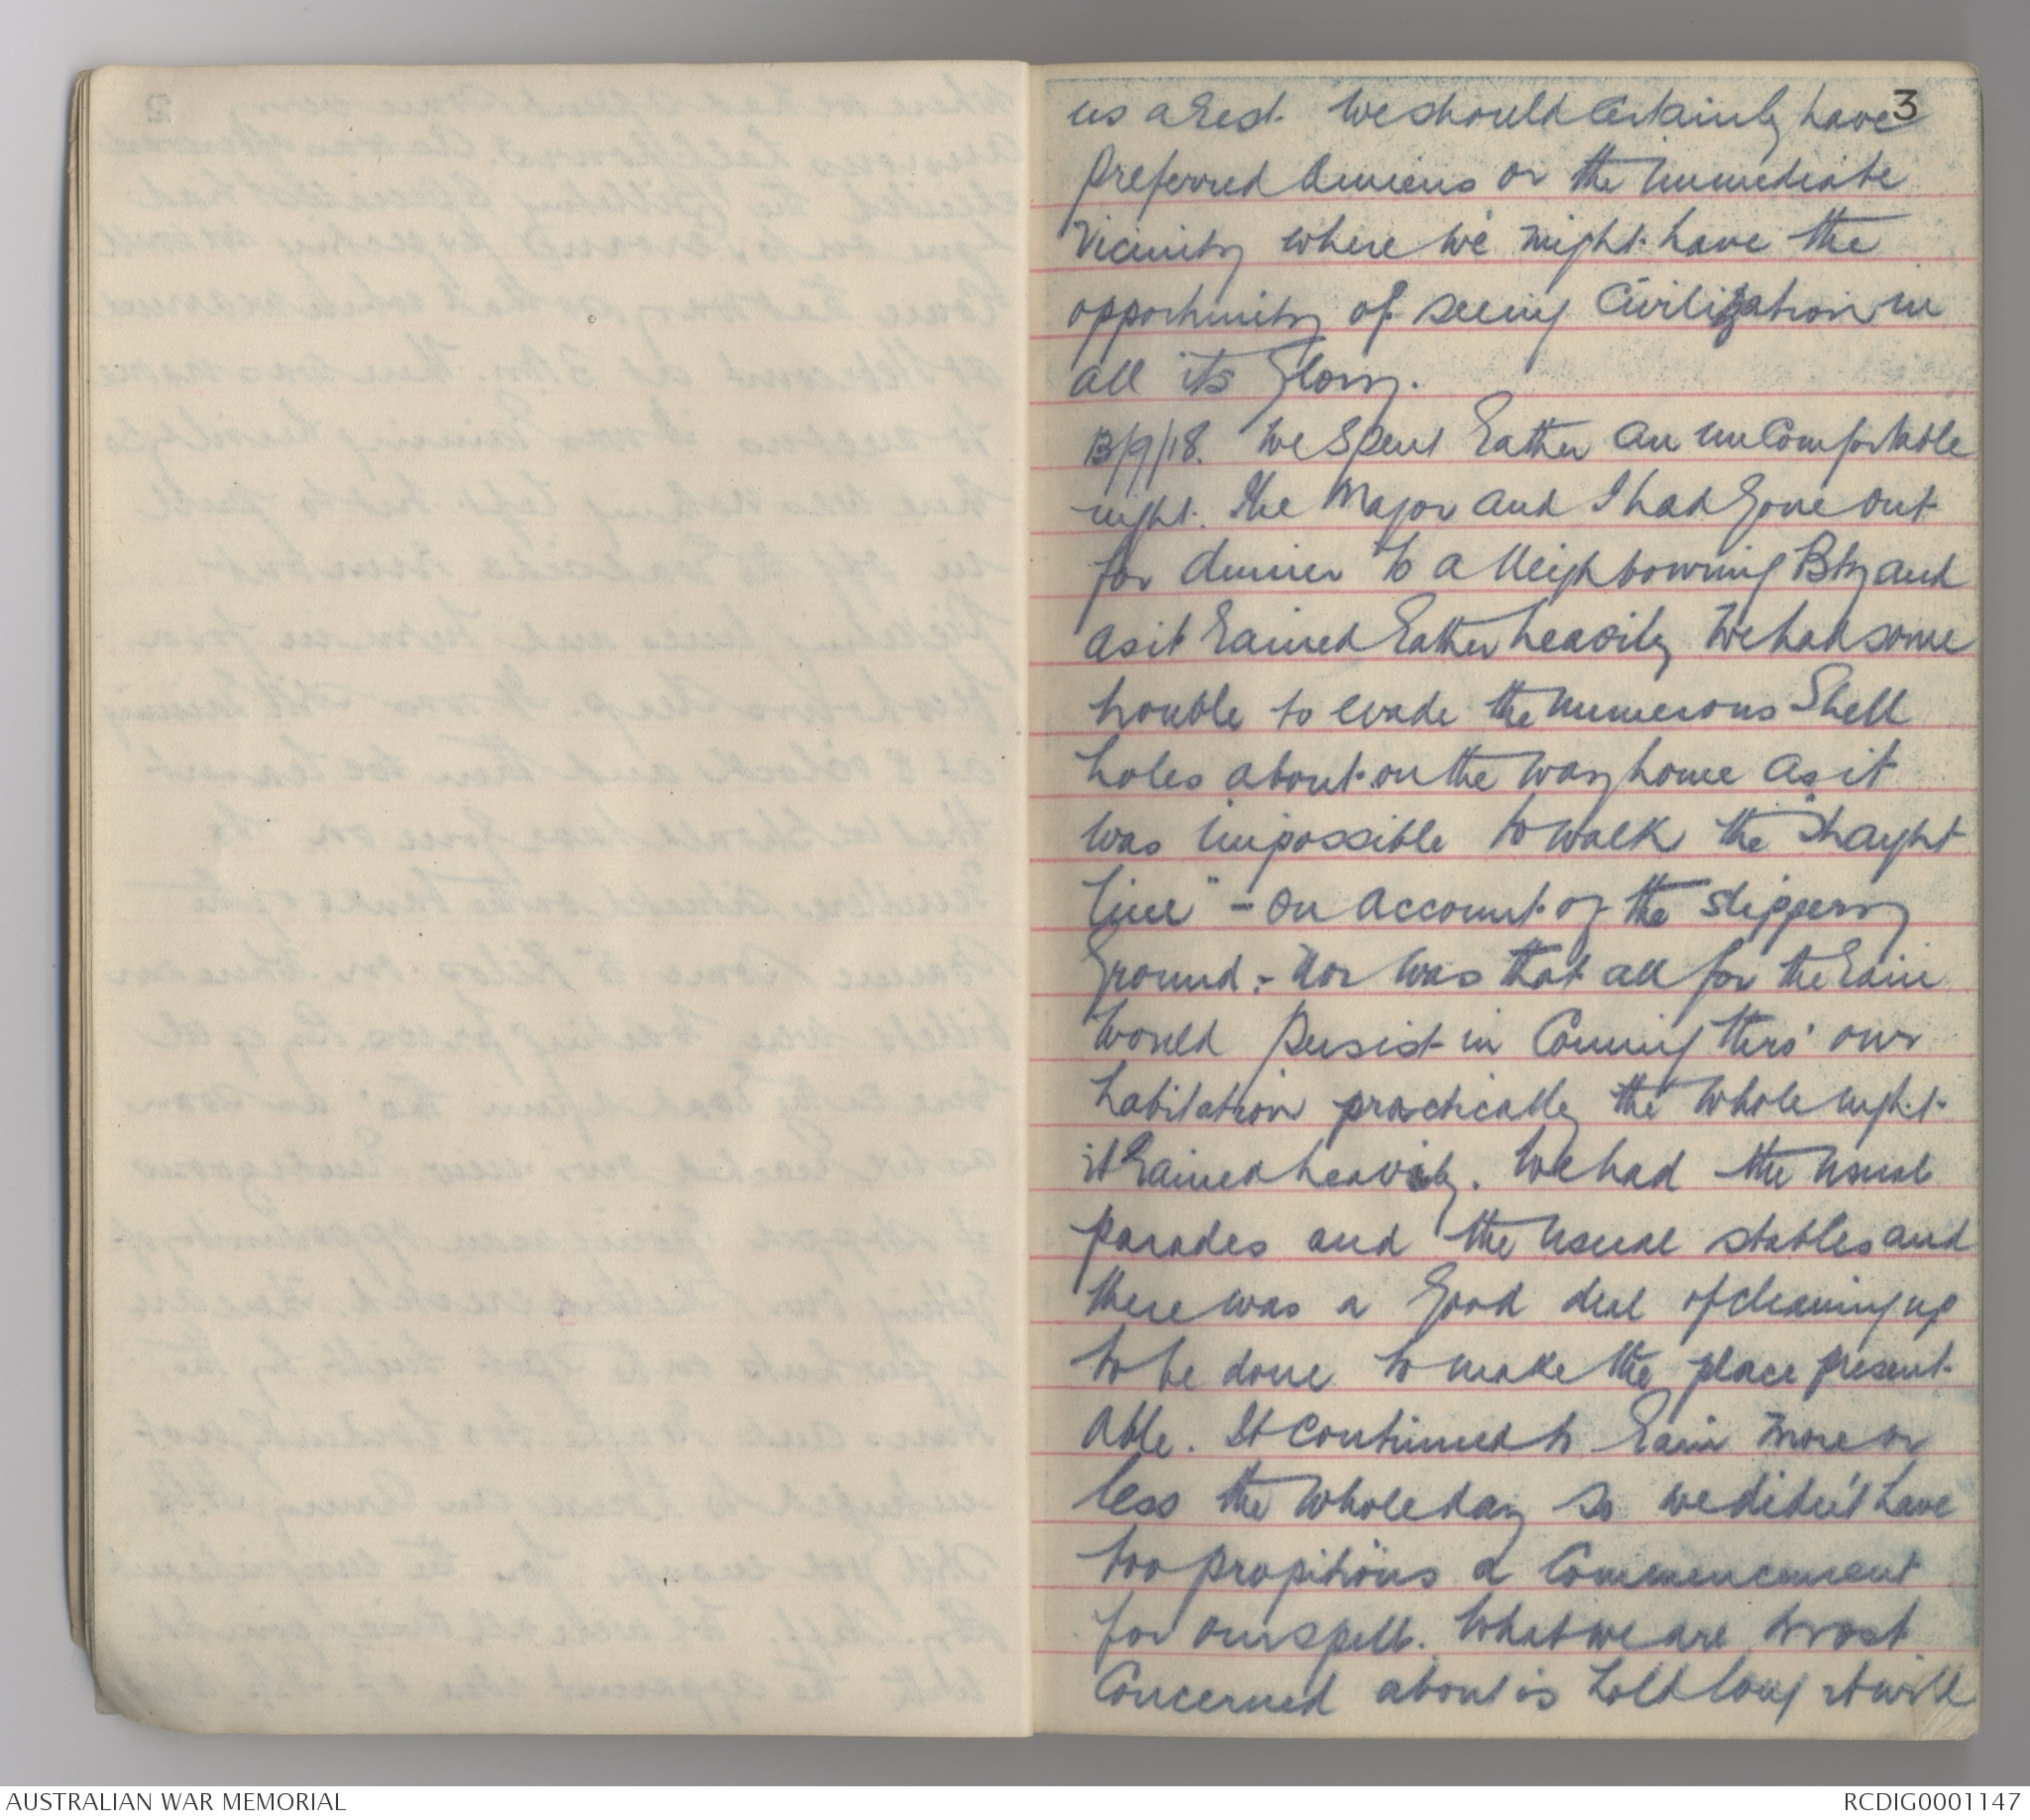 3
us a rest. We should certainly have
preferred Amiens or the immediate
vicinity where we might have the
opportunity of seeing Civilization in
all its glory.
13/9/18. We spent rather an uncomfortable
night. The Major and I had gone out
for dinner to a Neighbouring Bty and
as it rained rather heavily we had some
trouble to evade the numerous Shell
holes about on the way home as it
was impossible to walk the "straight
line" - on account of the slippery
ground; - Nor was that all for the rain
would persist in coming thro' our
habitation practically the whole night.
it rained heavily. We had the usual
parades and the usual stables and
there was a good deal of cleaning up
to be done to make the place present
able. It continued to rain more or
less the whole day so we didn't have
too propitious a commencement
for our spell. What we are most
concerned about is how long it will
AUSTRALIAN WAR MEMORIAL
RCDIG0001147